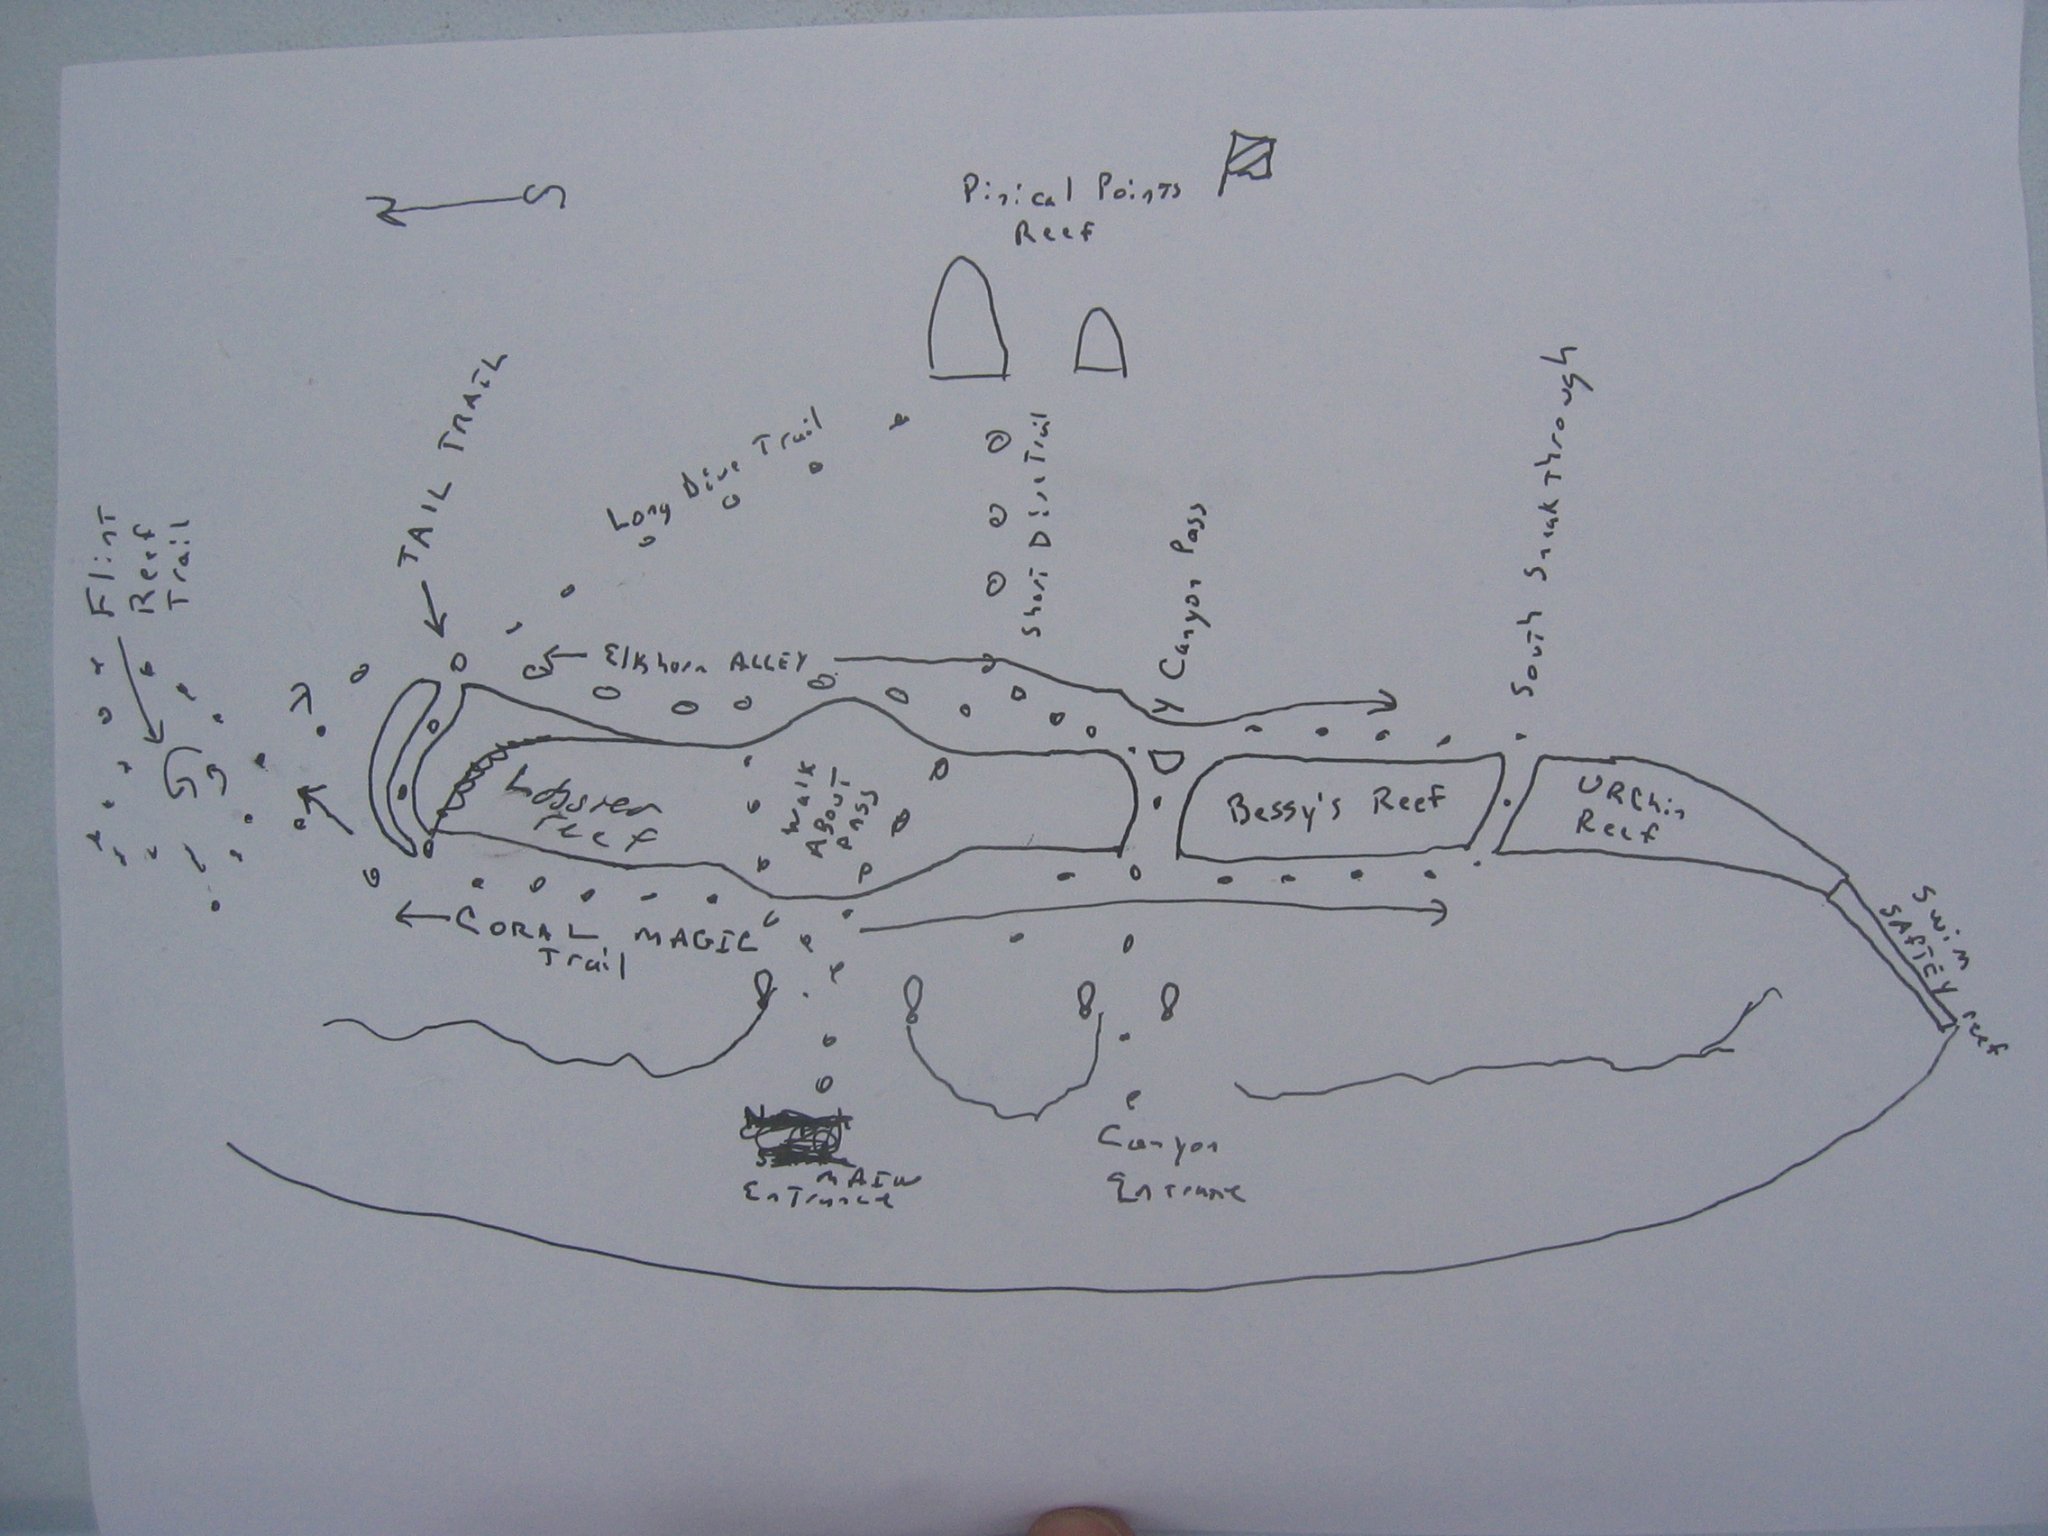 N S
Pinical Points
Reef
TAIL TRAIL
Long Dive Trail
Short Dive Trail
Canyon Pass
South Sneak Through
Flint
Reef
Trail
Elkhorn ALLEY
Lobster
reef
Walk
About
Pass
Bessy's Reef
URChin
Reef
Swim
SAftEy reef
CORAL MAGIC
Trail
MAIN
EnTrance
Canyon
Entrance